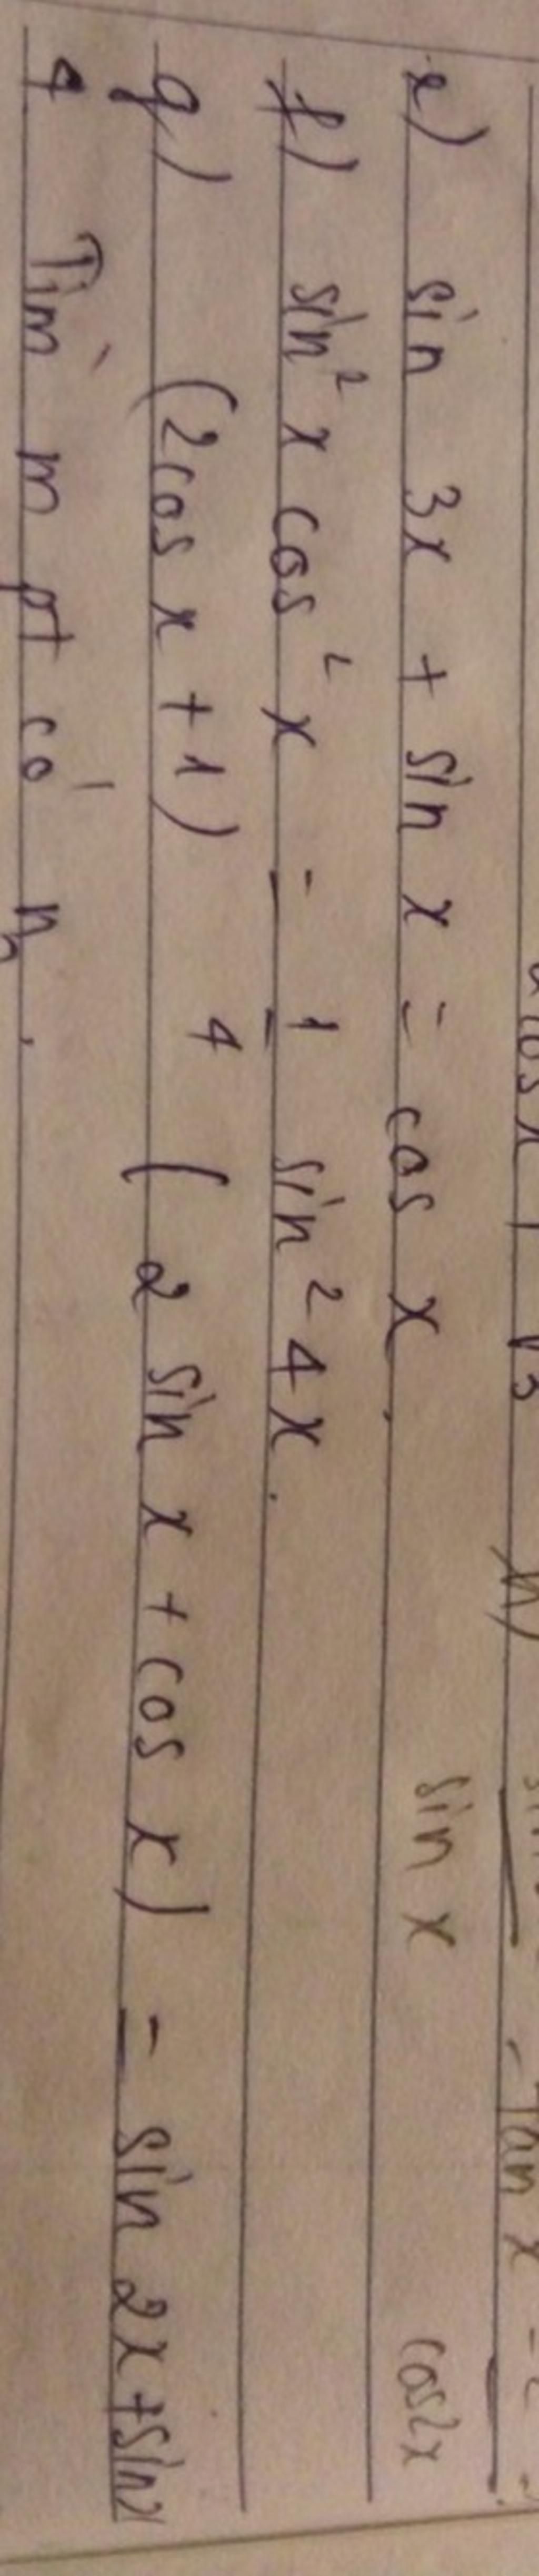 cos x 1 √3 h) - Tan x =
sin x cos2x
e) sin 3x + sin x = cos x.
f) sin² x cos² x = 1/4 sin² 4x.
g) (2cos x + 1) ( 2 sin x + cos x) = sin 2x + sin x
4 Tìm m pt có n